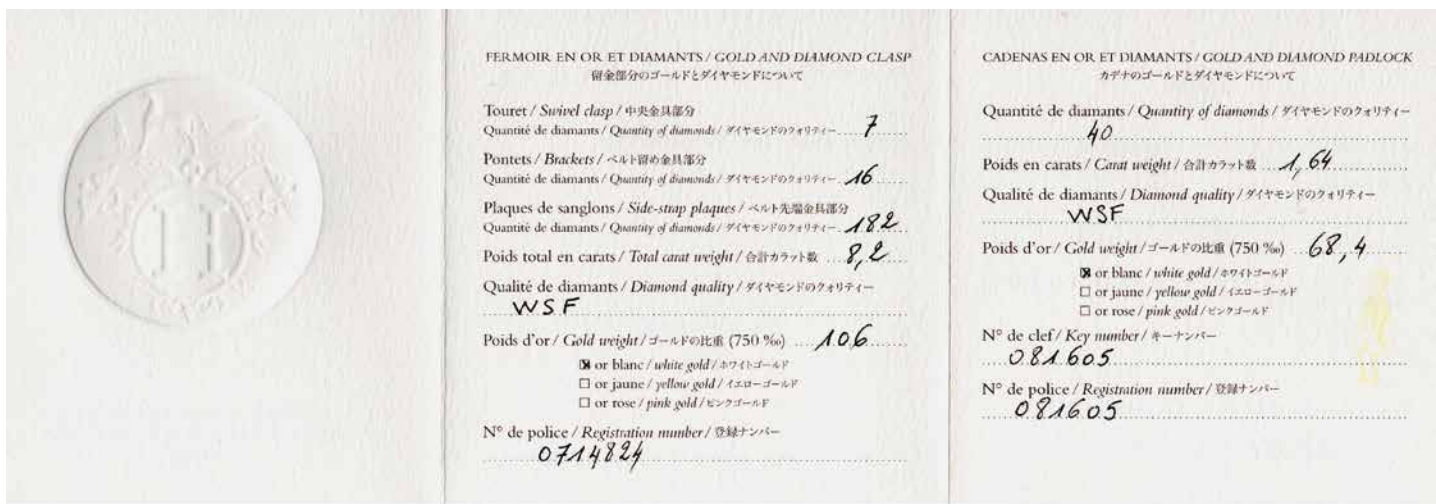 H
FERMOIR EN OR ET DIAMANTS / GOLD AND DIAMOND CLASP
留金部分のゴールドとダイヤモンドについて
Touret / Swivel clasp / 中央金具部分
Quantité de diamants / Quantity of diamonds / ダイヤモンドのクォリティー 7
Pontets / Brackets / ベルト留め金具部分
Quantité de diamants / Quantity of diamonds / ダイヤモンドのクォリティー 16
Plaques de sanglons / Side-strap plaques / ベルト先端金具部分
Quantité de diamants / Quantity of diamonds / ダイヤモンドのクォリティー 182
Poids total en carats / Total carat weight / 合計カラット数 8,2
Qualité de diamants / Diamond quality / ダイヤモンドのクォリティー
WSF
Poids d'or / Gold weight / ゴールドの比重 (750 ‰) 106
or blanc / white gold / ホワイトゴールド
or jaune / yellow gold / イエローゴールド
or rose / pink gold / ピンクゴールド
N° de police / Registration number / 登録ナンバー
0714824
CADENAS EN OR ET DIAMANTS / GOLD AND DIAMOND PADLOCK
カデナのゴールドとダイヤモンドについて
Quantité de diamants / Quantity of diamonds / ダイヤモンドのクォリティー
40
Poids en carats / Carat weight / 合計カラット数 1,64
Qualité de diamants / Diamond quality / ダイヤモンドのクォリティー
WSF
Poids d'or / Gold weight / ゴールドの比重 (750 ‰) 68,4
or blanc / white gold / ホワイトゴールド
or jaune / yellow gold / イエローゴールド
or rose / pink gold / ピンクゴールド
N° de clef / Key number / キーナンバー
081605
N° de police / Registration number / 登録ナンバー
081605